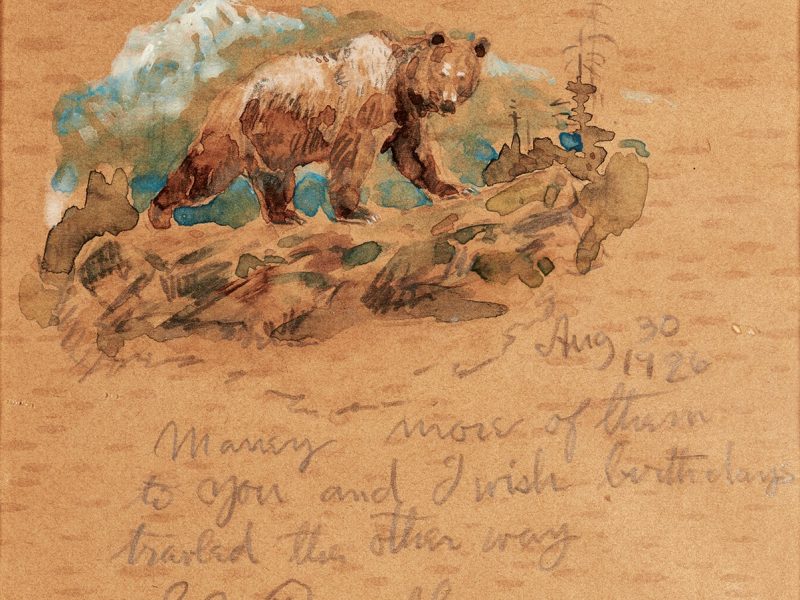 Aug 30
1926
Maney more of them
to you and I wish birthdays
travled the other way